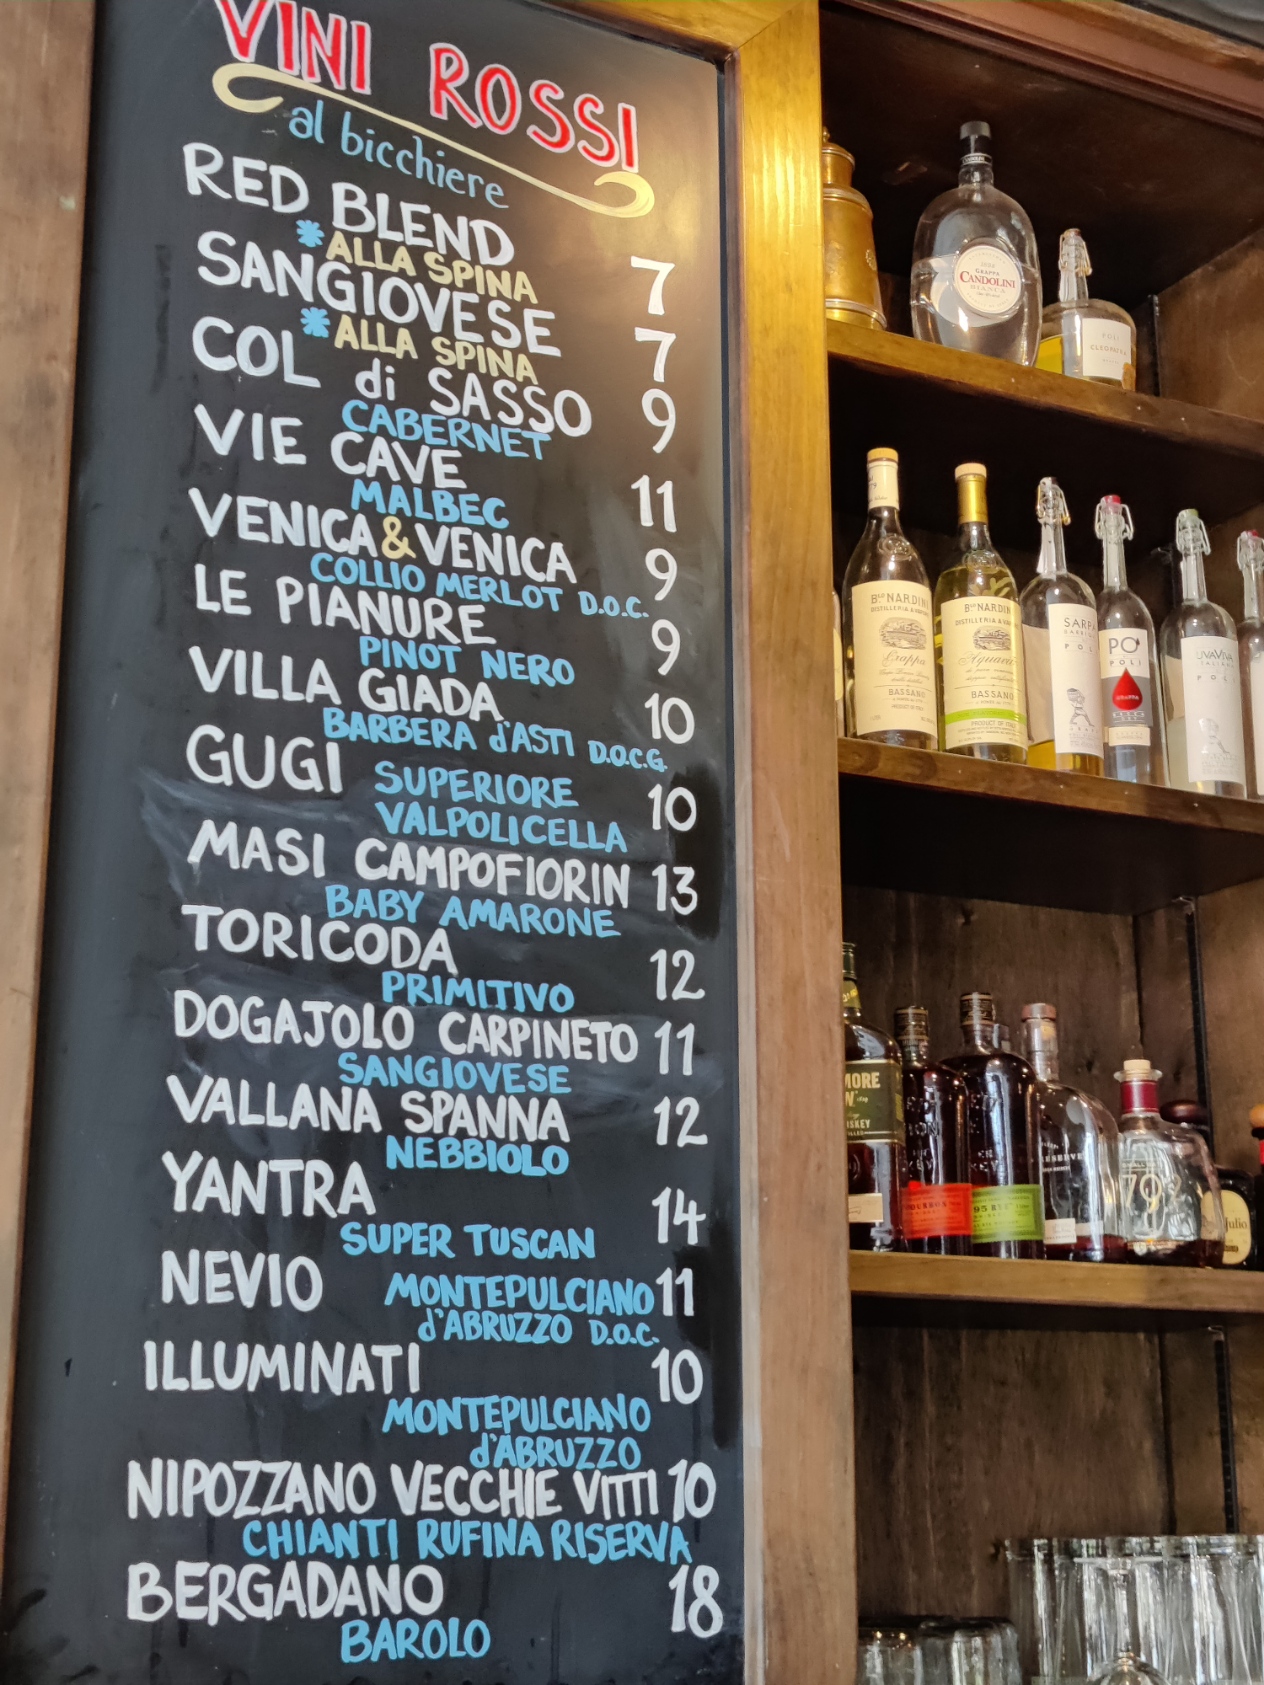 VINI ROSSI
al bicchiere
RED BLEND 7
*ALLA SPINA
SANGIOVESE 7
*ALLA SPINA
COL di SASSO 9
CABERNET
VIE CAVE 11
MALBEC
VENICA & VENICA 9
COLLIO MERLOT D.O.C.
LE PIANURE 9
PINOT NERO
VILLA GIADA 10
BARBERA d'ASTI D.O.C.G.
GUGI 10
SUPERIORE
VALPOLICELLA
MASI CAMPOFIORIN 13
BABY AMARONE
TORICODA 12
PRIMITIVO
DOGAJOLO CARPINETO 11
SANGIOVESE
VALLANA SPANNA 12
NEBBIOLO
YANTRA 14
SUPER TUSCAN
NEVIO MONTEPULCIANO 11
d'ABRUZZO D.O.C.
ILLUMINATI 10
MONTEPULCIANO
d'ABRUZZO
NIPOZZANO VECCHIE VITTI 10
CHIANTI RUFINA RISERVA
BERGADANO 18
BAROLO
GRAPPA
CANDOLINI
BIANCA
POLI
CLEOPATRA
B.LO NARDINI
DISTILLERIA A VAPORE
Grappa
BASSANO
PRODUCT OF ITALY
B.LO NARDINI
DISTILLERIA A VAPORE
Aquavite
BASSANO
PRODUCT OF ITALY
SARPA
POLI
PO'
POLI
UVAVIVA
ITALIANA
POLI
MORE
BOURBON
95 RYE
RESERVE
Julio